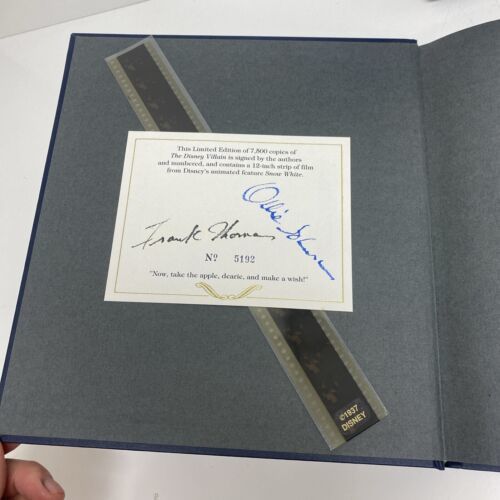 This Limited Edition of 7,800 copies of
The Disney Villain is signed by the authors
and numbered, and contains a 12-inch strip of film
from Disney's animated feature Snow White.
Ollie Johnston
Frank Thomas
Nº 5192
"Now, take the apple, dearie, and make a wish!"
©1937
DISNEY